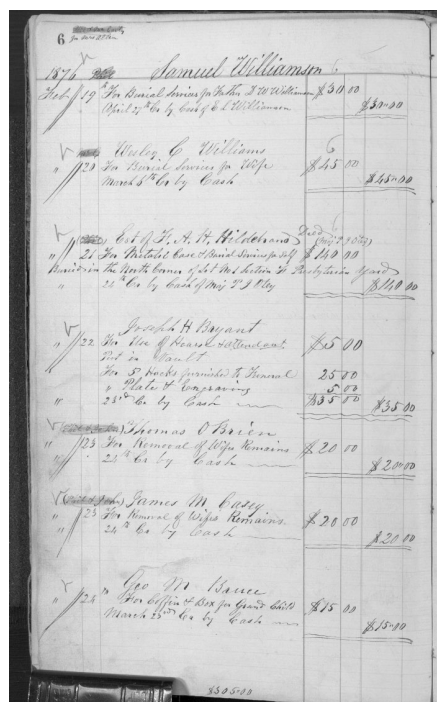 6
1876 Samuel Williamson
Feb 19th For Burial Services for Father D W Williamson $30 00
April 27th Cr by Cash of E L Williamson $30.00
Wesley C Williams
" 20 For Burial Services for Wife $45 00
March 5th Cr by Cash $45.00
Est of F. A. H. Hildebrand Dec'd
" 21 For Metalic Case & Burial Services for Self $140 00
Buried in the North Corner of Lot No 2 Section Presbyterian Yard
" 22th Cr by Cash of Maj P J Otey $140.00
Joseph H Bryant
" 22 For Use of Hearse & attendant $5 00
Put in Vault
For 5 Hacks furnished to Funeral 25 00
" Plate & Engraving 5 00
" 23rd Cr by Cash $35 00 $35.00
Thomas O'Brien
" 23 For Removal of Wifes Remains $20 00
" 24th Cr by Cash $20.00
James M Casey
" 23 For Removal of Wifes Remains. $20 00
" 24th Cr by Cash $20.00
Geo M Bruce
" 24th For Coffin & Box for Grand Child $15 00
March 23rd Cr by Cash $15.00
$305.00